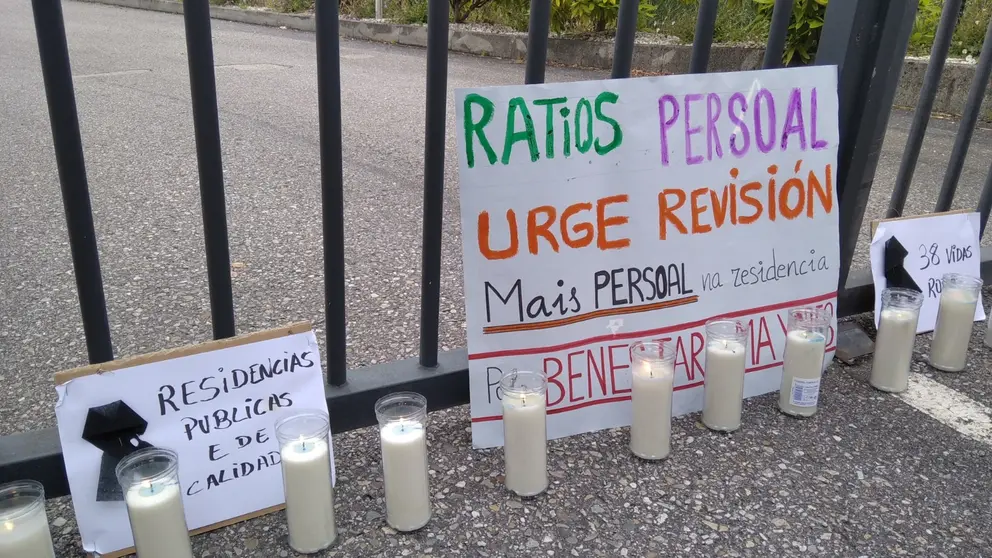 RESIDENCIAS
PUBLICAS
E DE
CALIDAD
RATiOS PERSOAL
URGE REVISIÓN
Mais PERSOAL na residencia
BENESTAR MAYORES
38 VIDAS